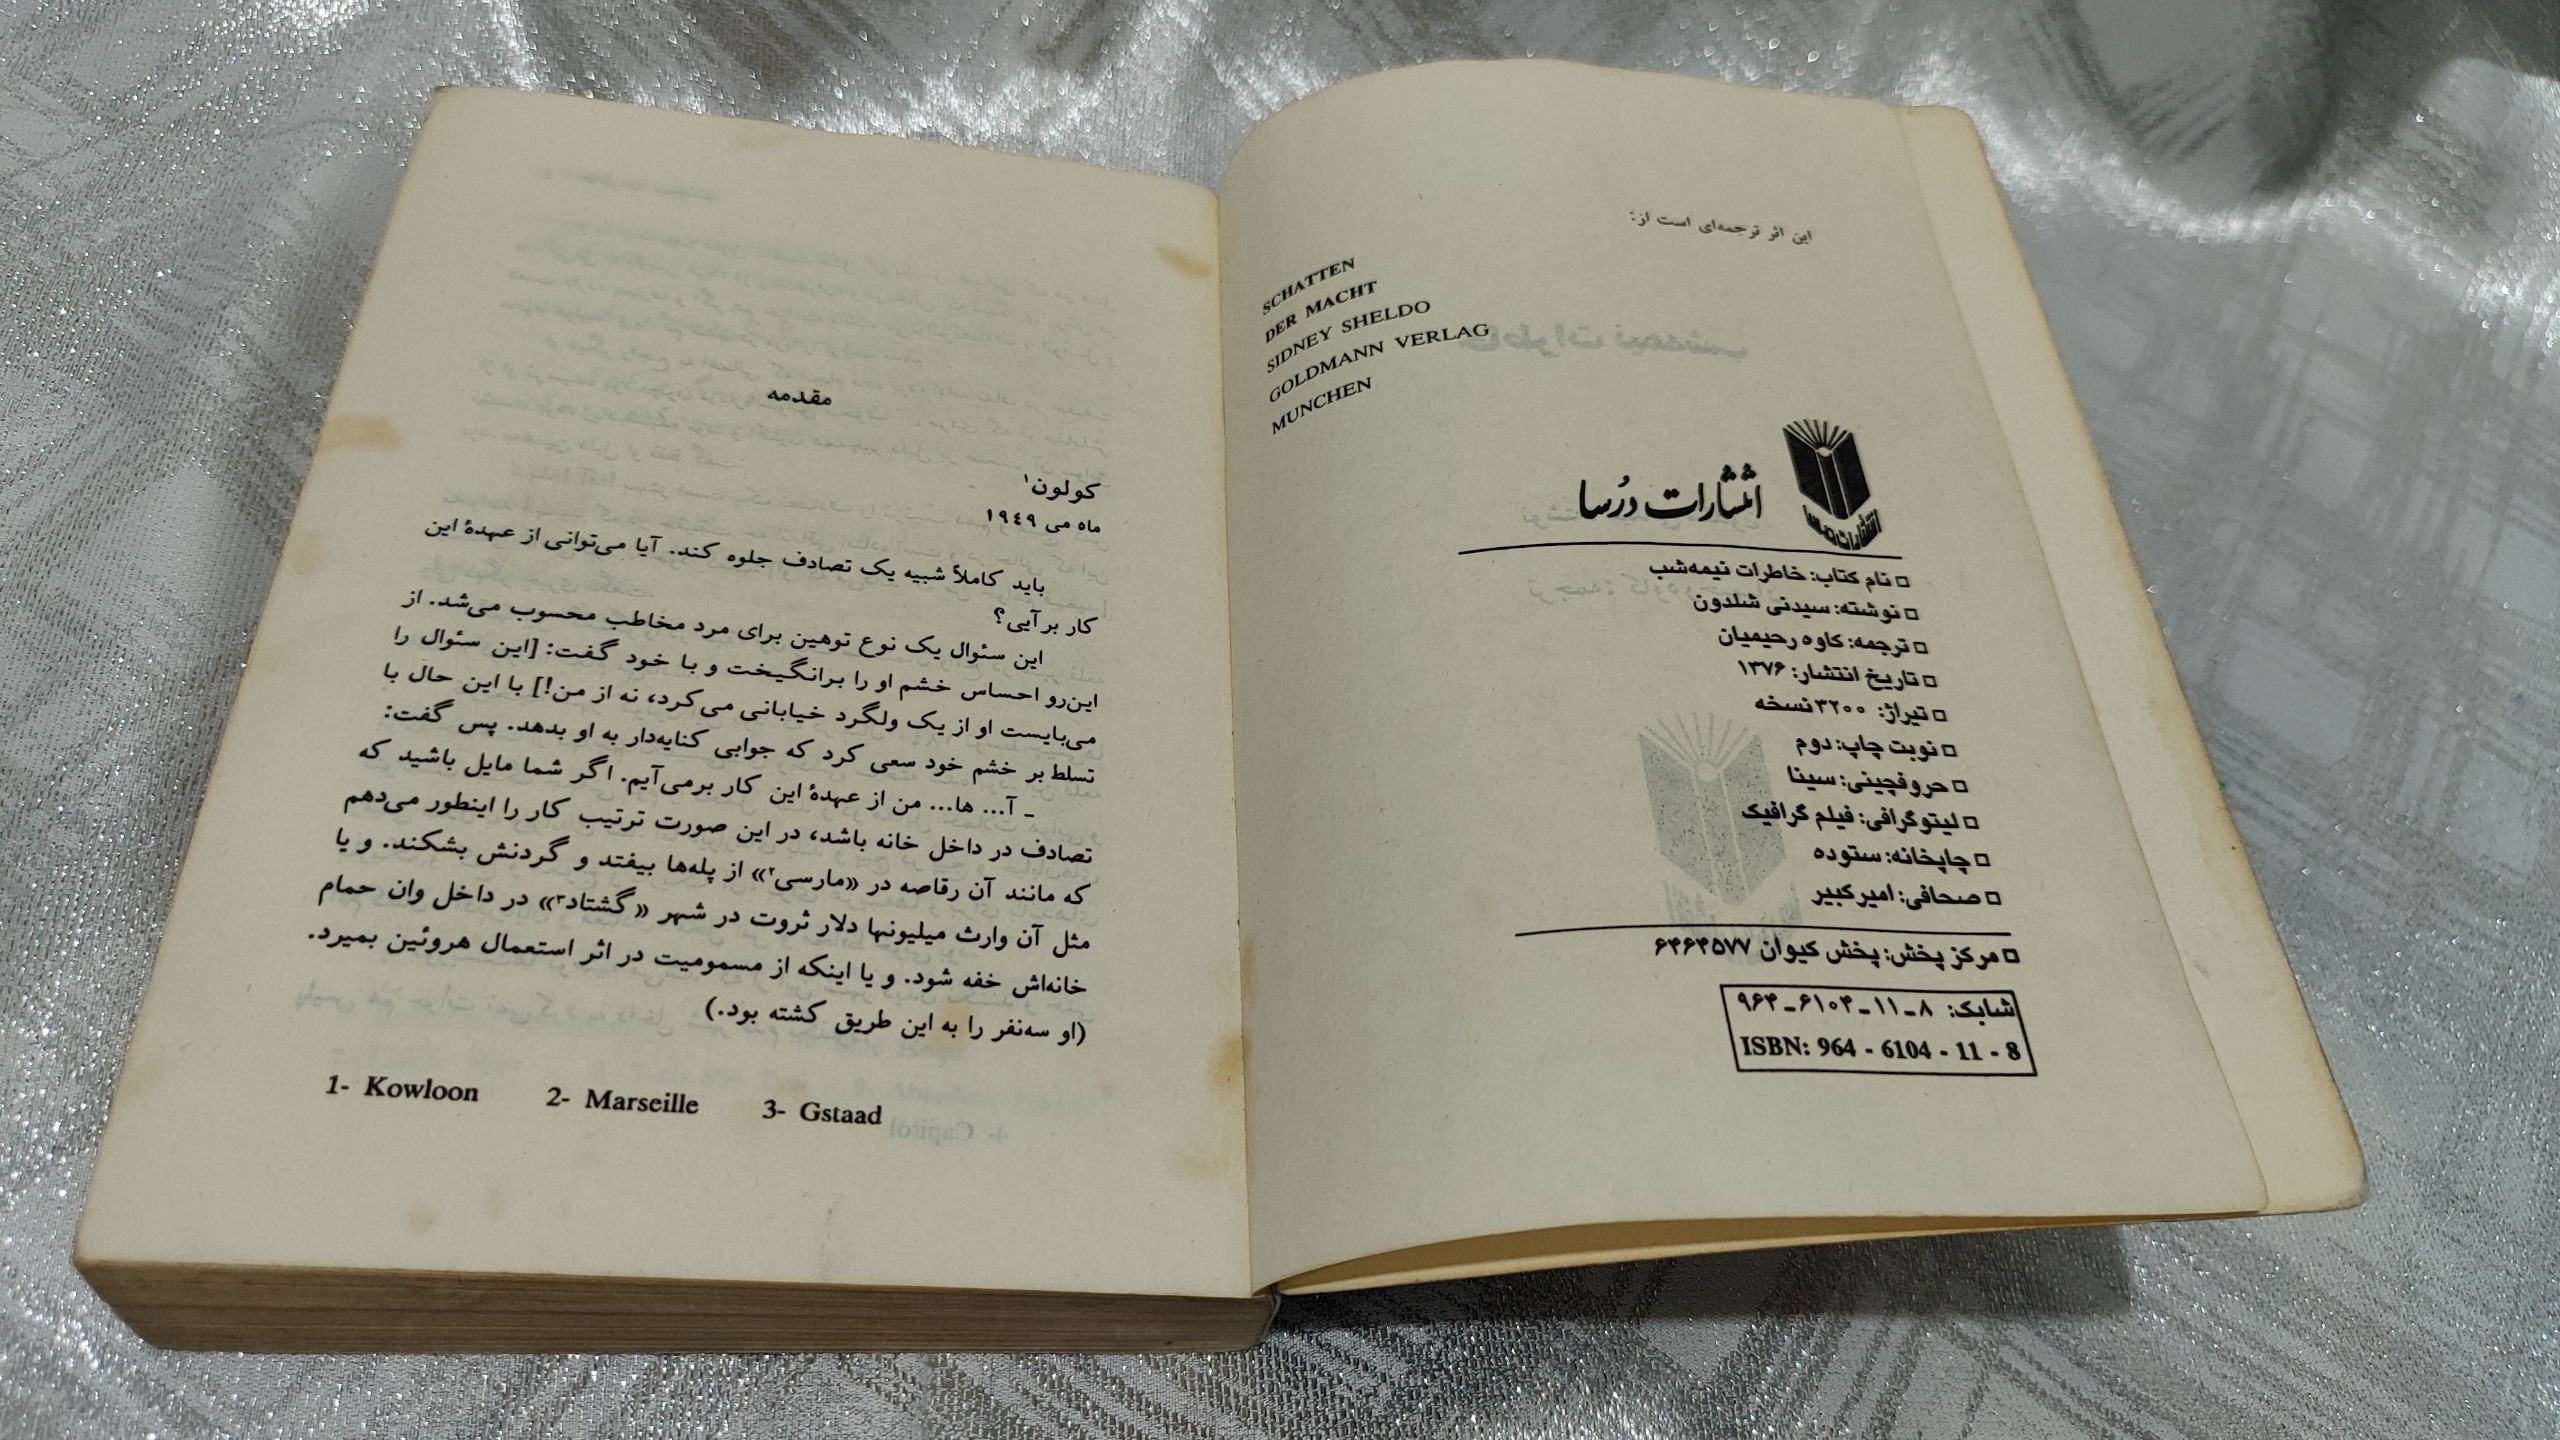 این اثر ترجمه‌ای است از:
SCHATTEN
DER MACHT
SIDNEY SHELDO
GOLDMANN VERLAG
MUNCHEN
انتشارات دُرسا
□ نام کتاب: خاطرات نیمه‌شب
□ نوشته: سیدنی شلدون
□ ترجمه: کاوه رحیمیان
□ تاریخ انتشار: ۱۳۷۶
□ تیراژ: ۳۲۰۰ نسخه
□ نوبت چاپ: دوم
□ حروفچینی: سینا
□ لیتوگرافی: فیلم گرافیک
□ چاپخانه: ستوده
□ صحافی: امیرکبیر
□ مرکز پخش: پخش کیوان ۶۴۶۴۵۷۷
شابک: ۸ـ۱۱ـ۶۱۰۴ـ۹۶۴
ISBN: 964 - 6104 - 11 - 8
مقدمه
کولون۱
ماه می ۱۹٤۹
باید کاملاً شبیه یک تصادف جلوه کند. آیا می‌توانی از عهدهٔ این
کار بر آیی؟
این سئوال یک نوع توهین برای مرد مخاطب محسوب می‌شد. از
این‌رو احساس خشم او را برانگیخت و با خود گفت: [این سئوال را
می‌بایست او از یک ولگرد خیابانی می‌کرد، نه از من!] با این حال با
تسلط بر خشم خود سعی کرد که جوابی کنایه‌دار به او بدهد. پس گفت:
ـ آ... ها... من از عهدهٔ این کار برمی‌آیم. اگر شما مایل باشید که
تصادف در داخل خانه باشد، در این صورت ترتیب کار را اینطور می‌دهم
که مانند آن رقاصه در «مارسی۲» از پله‌ها بیفتد و گردنش بشکند. و یا
مثل آن وارث میلیونها دلار ثروت در شهر «گشتاد۳» در داخل وان حمام
خانه‌اش خفه شود. و یا اینکه از مسمومیت در اثر استعمال هروئین بمیرد.
(او سه‌نفر را به این طریق کشته بود.)
1- Kowloon 2- Marseille 3- Gstaad